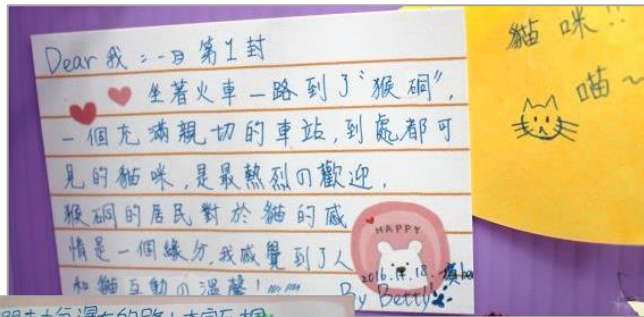 Dear 我：一日第1封
坐著火車一路到了"猴硐",
一個充滿親切的車站,到處都可
見的貓咪,是最熱烈の歡迎.
猴硐的居民對於貓的感
情是一個緣分,我感覺到了人
和貓互動の溫馨!
HAPPY
2016.11.18.
By Betty
貓咪!!
喵~